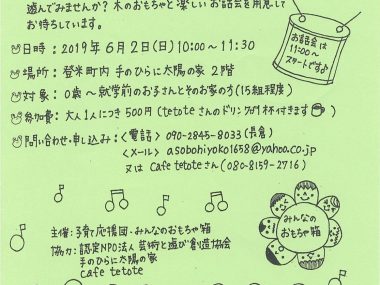 遊んでみませんか？木のおもちゃと楽しいお話会を用意して
お待ちしています。
日時：2019年6月2日(日)10:00〜11:30
お話会は
11:00〜
スタートです♪
場所：登米町内 手のひらに太陽の家 2階
対象：0歳〜就学前のお子さんとそのお家の方(15組程度)
参加費：大人1人につき500円(tetoteさんのドリンク1杯付きます)
問い合わせ・申し込み：<電話> 090-2845-8033(長倉)
<メール> asobohiyoko1658@yahoo.co.jp
又は Cafe tetoteさん(080-8159-2716)
主催：子育て応援団・みんなのおもちゃ箱
協力：認定NPO法人 芸術と遊び創造協会
手のひらに太陽の家
cafe tetote
みんなの
おもちゃ箱